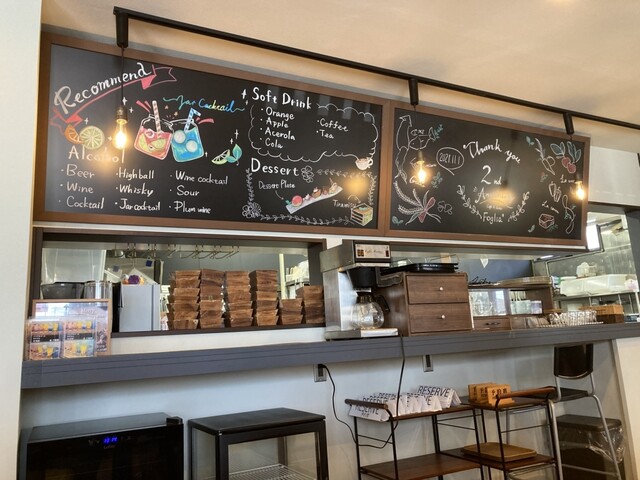 Recommend
Jar Cocktail
Alcohol
・Beer
・Wine
・Cocktail
・Highball
・Whisky
・Jar cocktail
・Wine cocktail
・Sour
・Plum wine
Soft Drink
・Orange
・Apple
・Acerola
・Cola
・Coffee
・Tea
Dessert
Dessert Plate
Tiramisu
Thank you
2nd
Foglia
RESERVE
RESERVE